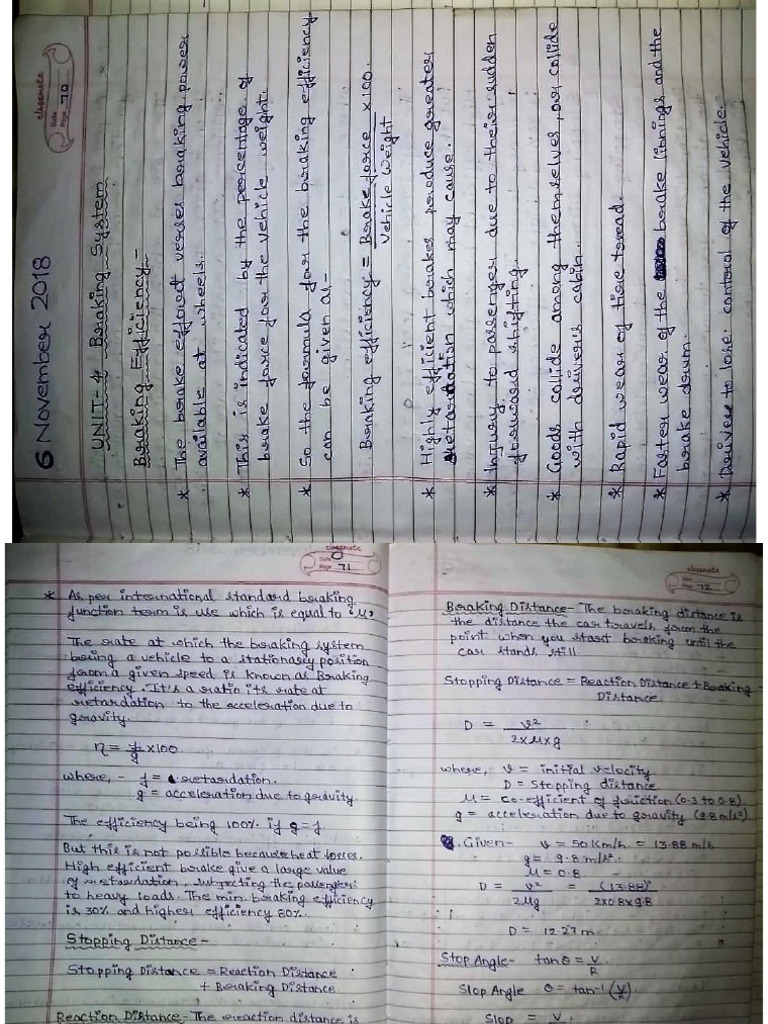 classmate
Date
Page 70
6 November 2018
UNIT-4 Braking System
Braking Efficiency-
* The brake efforet verses braking power
available at wheels.
* This is indicated by the percentage of
brake force for the vehicle weight.
* So the formula for the braking efficiency
can be given as-
Braking efficiency = Brake force x100.
Vehicle Weight
* Highly efficient brakes produce greater
retardation which may cause.
* Injury to passenger due to their sudden
forward shifting.
* Goods collide among themselves, or collide
with drivers cabin.
* Rapid wear of tire tread.
* Faster wear of the brake linnings and the
brake drum.
* Driver to lose control of the vehicle.
classmate
Page 71
* As per international standard braking
function term is use which is equal to 'μ'
The rate at which the braking system
bring a vehicle to a stationary position
from a given speed is known as Braking
efficiency. It's a ratio its rate at
retardation to the acceleration due to
gravity.
η = f/g x100
where, - f = retardation.
g = acceleration due to gravity
The efficiency being 100% if g=f.
But this is not possible because heat losses.
High efficient brake give a large value
of retardation, subjecting the passengers
to heavy loads. The min. braking efficiency
is 30% and higher efficiency 80%.
Stopping Distance -
Stopping Distance = Reaction Distance
+ Braking Distance
Reaction Distance - The reaction distance is
classmate
Date
Page 72
Braking Distance- The braking distance is
the distance the car travels from the
point when you start braking until the
car stands still.
Stopping Distance = Reaction Distance + Braking
Distance
D = v²
2xμxg
where, v = initial velocity
D = Stopping distance
μ = Co-efficient of friction (0.3 to 0.8).
g = acceleration due to gravity (9.8 m/s²).
Given- v = 50 Km/h. = 13.88 m/s
g = 9.8 m/s².
μ = 0.8
D = v² = (13.88)²
2μg 2x0.8x9.8
D = 12.27 m.
Stop Angle- tanθ = V/R
Slop Angle θ = tan⁻¹ (V/R)
Slop = V